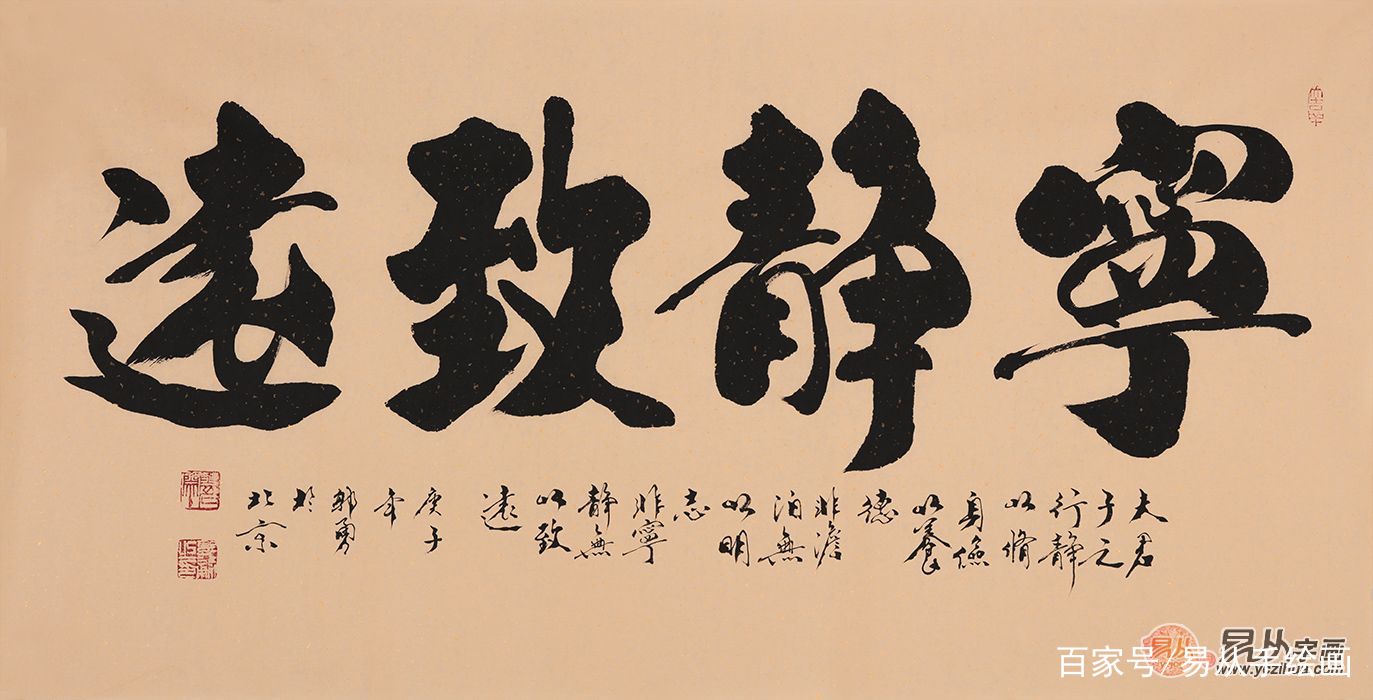 寧靜致遠
夫君
子之
行静
以脩
身儉
以養
德
非澹
泊無
以明
志
非寧
静無
以致
遠
庚子
年
郭勇
於
北京
百家号/易从手绘画
易从字画
www.yczihua.com